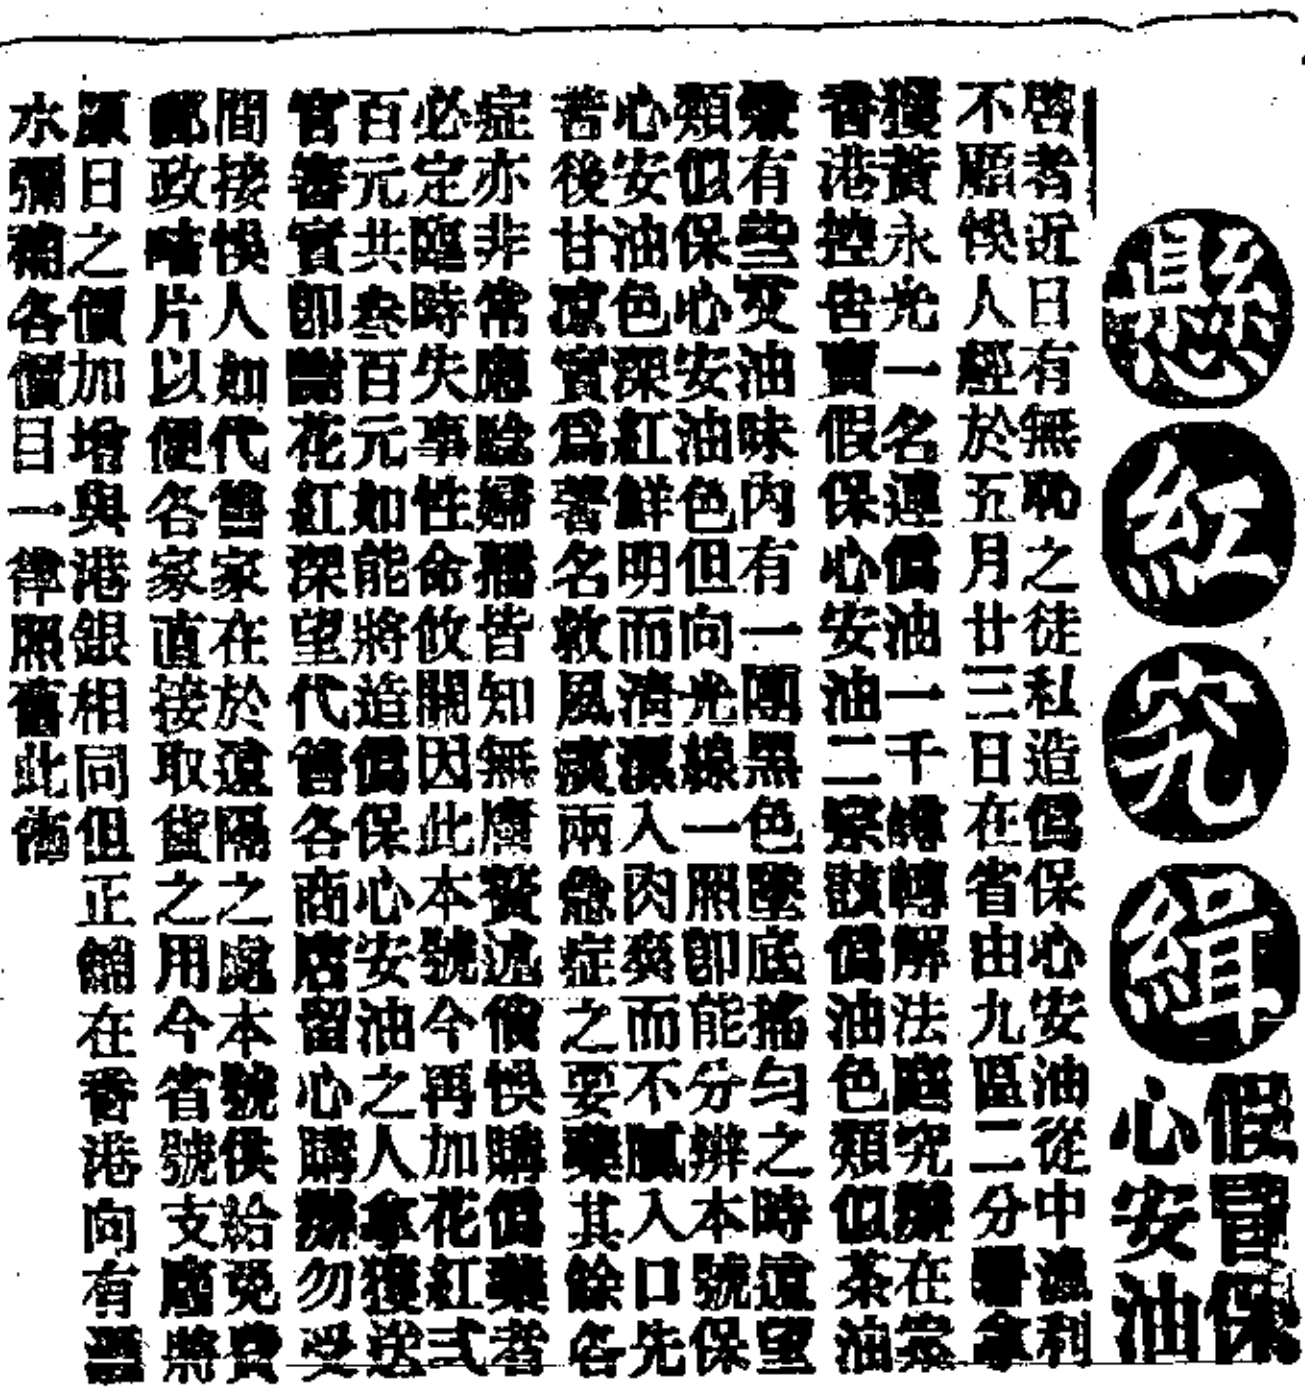 懸紅究緝
假冒保
心安油
啓者近日有無恥之徒私造僞保心安油從中漁利
不顧悞人經於五月廿三日在省由九區二分署拿
獲黃永光一名連僞油一千樽轉解法庭究辦在案
香港控告賣假保心安油二案該僞油色類似茶油
有些油味內有一團黑色墜底搖勻之時遠望
類似保心安油色但向光線一照即能分辨本號保
心安油色深紅鮮明而清漂入肉爽而不膩入口先
苦後甘凉實爲著名救風痰兩急症之要藥其餘各
症亦非常應驗婦孺皆知無庸贅述倘悞購僞藥者
必定臨時失事性命攸關因此本號今再加花紅式
百元共叁百元如能將造僞保心安油之人拿獲送
官審實即謝花紅深望代售各商店留心購辦勿受
間接悞人如代售家在於遠隔之處本號供給免費
郵政啨片以便各家直接取貨之用今省號支廛將
原日之價加增與港銀相同但正舖在香港向有
水彌補各價目一律照舊此佈